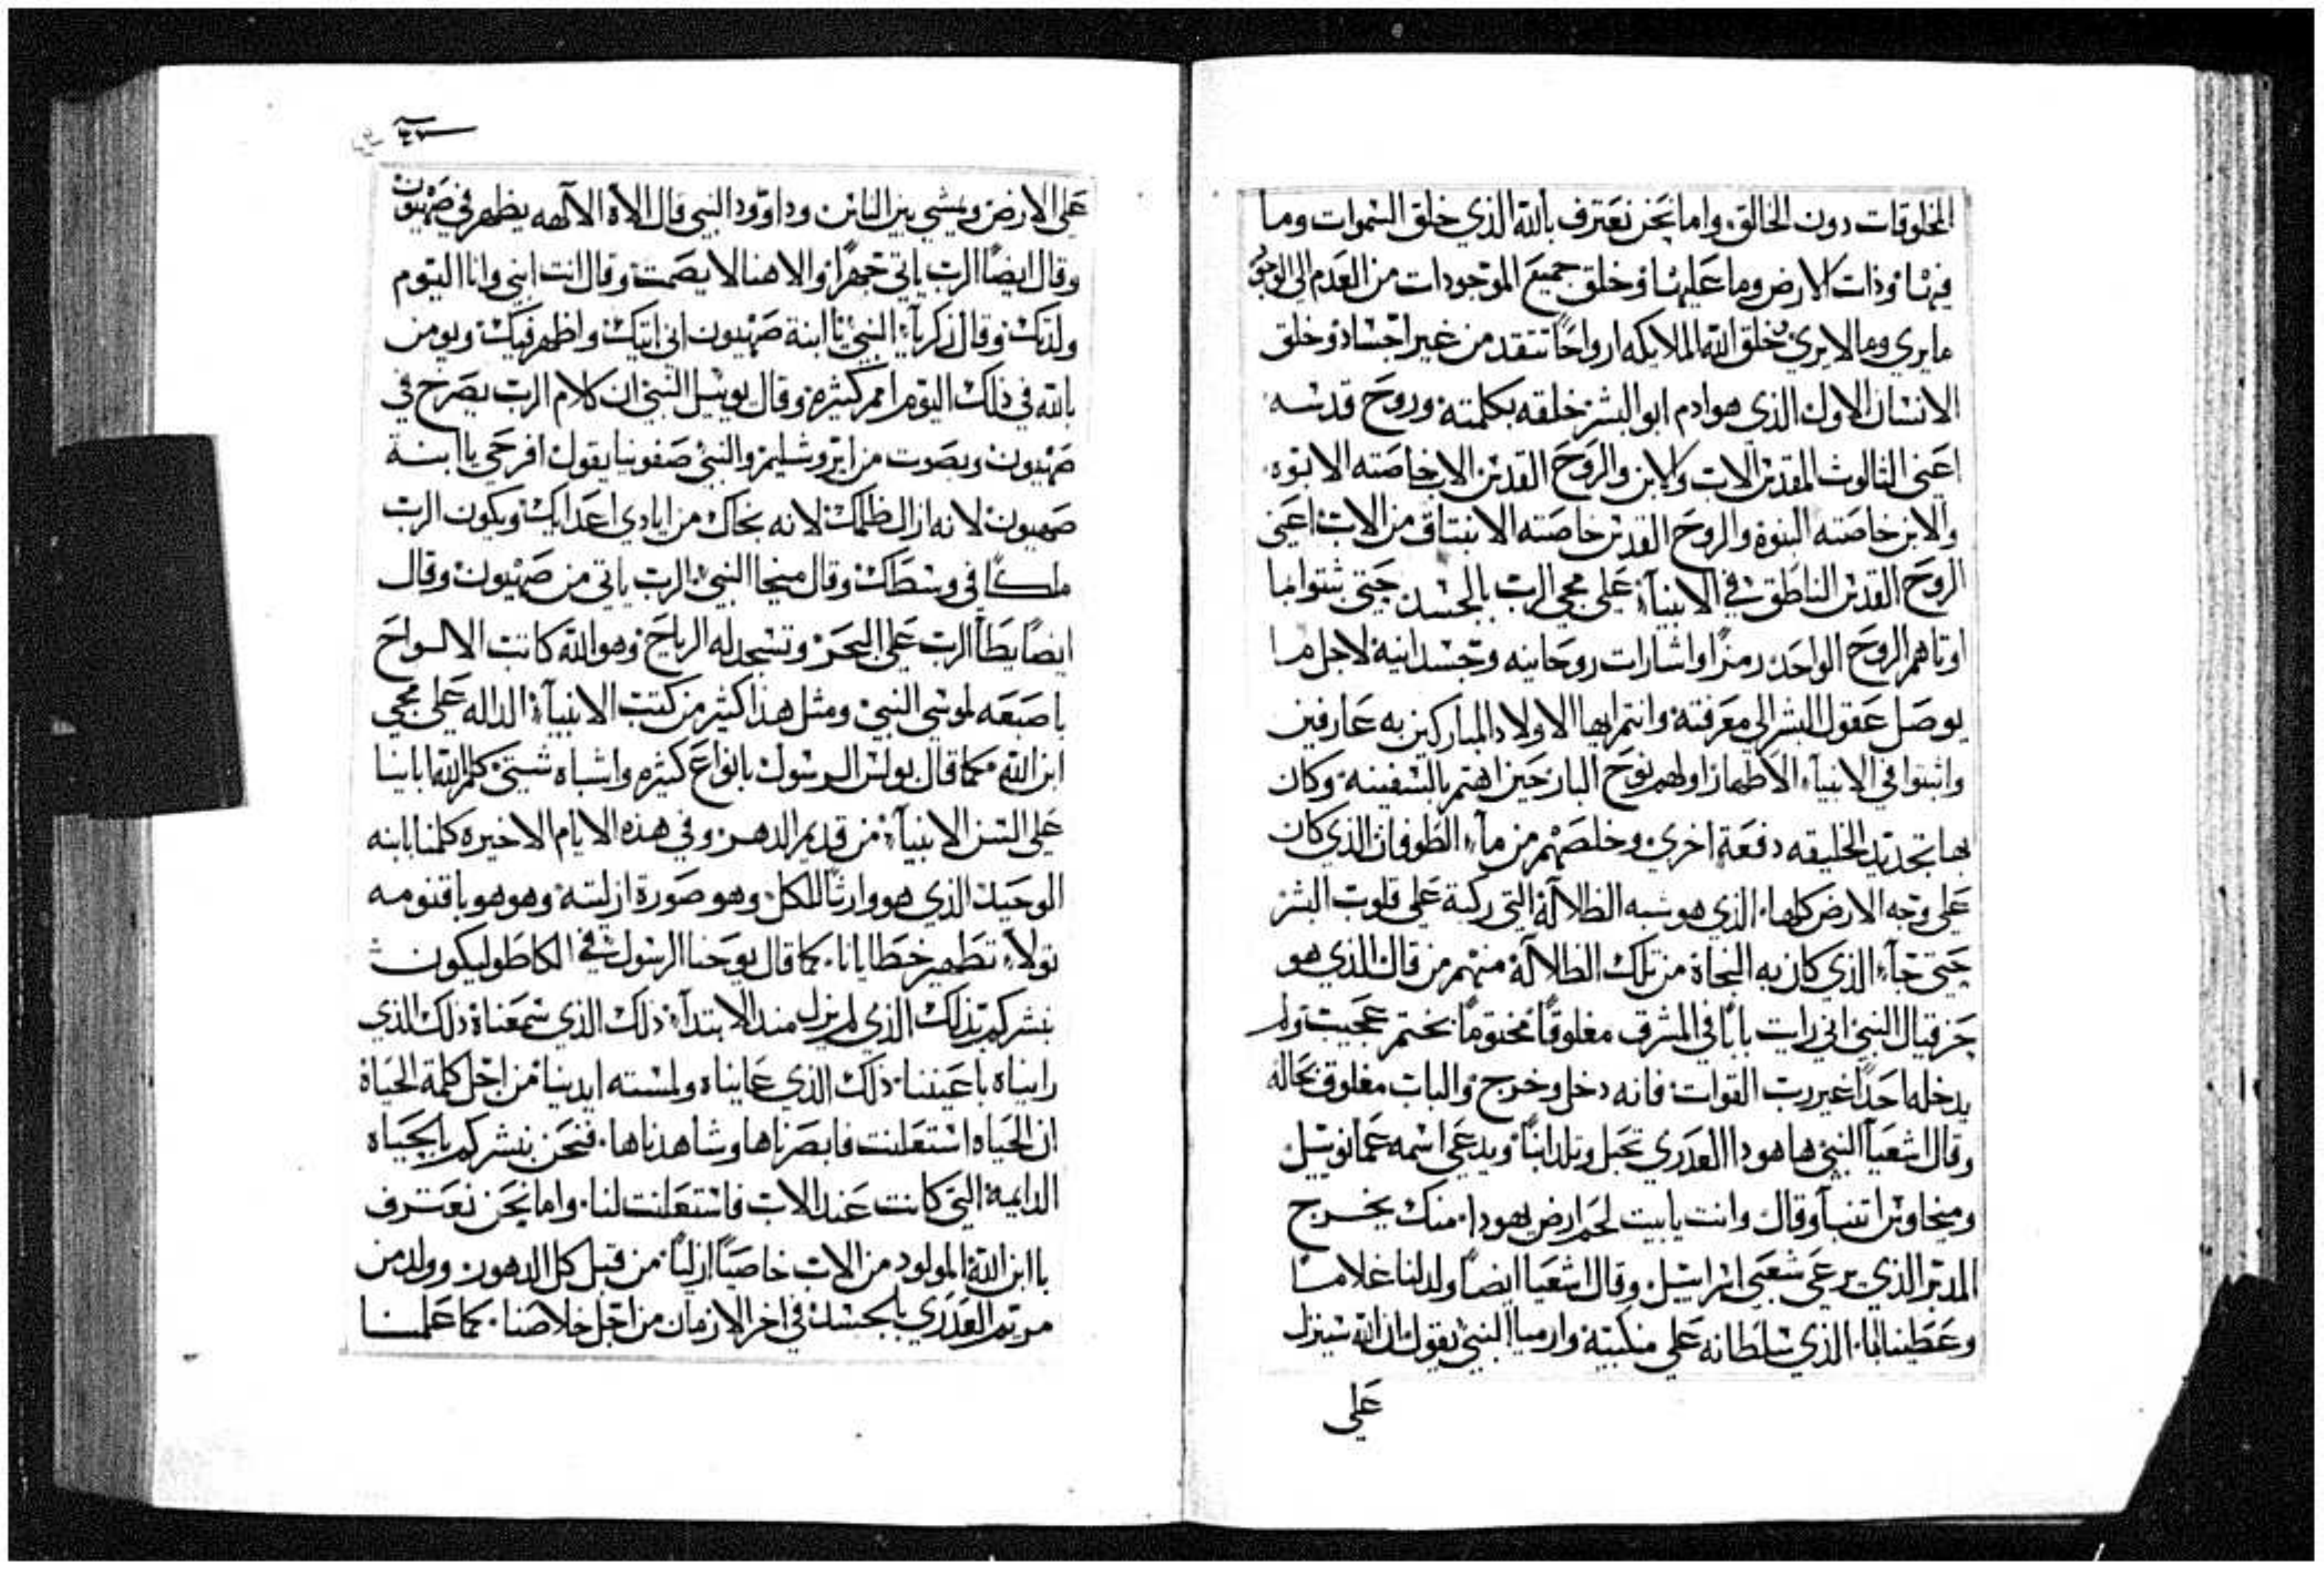 المخلوقات دون الخالق. واما نحن نعترف بالله الذي خلق السموات وما
فيها وذات الارض وما عليها وخلق جميع الموجودات من العدم الى الوجود
ما يرى وما لا يرى وخلق الله الملايكه ارواحًا تتقد من غير اجساد وخلق
الانسان الاول الذي هو ادم ابو البشر خلقه بكلمته وروح قدسه
اعني الثالوث المقدس الاب والابن والروح القدس الاب خاصته الابوه
والابن خاصته البنوة والروح القدس خاصته الانبتاق من الاب اعني
الروح القدس الناطق في الانبيآء على مجي الرب بالجسد حتى
اوتاهم الروح الواحد رمزًا واشارات روحانيه وجسدانية لاجل ما
يوصل عقول البشر الى معرفته وانتم ايها الاولاد المباركين به عارفين
واثبتوا في الانبيآء الاطهار اولهم نوح البار حين اهتم بالسفينه وكان
بها تجديد الخليقه دفعة اخرى وخلصهم من مآء الطوفان الذي كان
على وجه الارض كلها. الذي هو شبه الظلالة التي ركبة على قلوب البشر
حتى جآء الذي كان به النجاة من تلك الظلالة منهم من قال الذي هو
حزقيال النبي اني رايت بابًا في المشرق مغلوقًا مختومًا بختم عجيب ولم
يدخله احدًا غير رب القوات فانه دخل وخرج والباب مغلوق بحاله
وقال اشعيآ النبي ها هودا العدري تحبل وتلد ابنًا ويدعى اسمه عمانوييل
وميخا اتنبآ وقال وانت يا بيت لحم ارض يهودا. منك يخرج
المدبر الذي يرعى شعبي اسراييل وقال اشعيا ايضًا ولد لنا غلامًا
الذي سلطانه على منكبيه وارميا النبي يقول ان الله سينزل
على
على الارض ويمشي بين الناس وداوود النبي قال الاه الالهه يظهر في صهيون
وقال ايضًا الرب ياتي جهرًا والاهنا لا يصمت وقال انت ابني وانا اليوم
ولدتك وقال زكريآء النبي يا ابنة صهيون اني اتيك واظهر فيك ويومن
بالله في ذلك اليوم امم كثيره وقال يوييل النبي ان كلام الرب يصرخ في
صهيون وبصوت من ايروشليم والنبي صفونيا يقول افرحي يا ابنة
صهيون لانه ازال ظلمك لانه نجاك من ايادي اعدايك ويكون الرب
ملكًا في وسطك وقال ميخا النبي الرب ياتي من صهيون وقال
ايضًا يطأ الرب على البحر وتسجد له الرياح وهو الله كاتب الالواح
باصبعه لموسى النبي ومثل هذا كثير من كتب الانبيآء الداله على مجي
ابن الله كما قال بولس الرسول بانواع كثيره واشباه شتى كلم الله ابانيا
على السن الانبيآء من قديم الدهر وفي هذه الايام الاخيره كلمنا بابنه
الوحيد الذي هو وارثًا للكل وهو صورة ازليته وهو هو باقنومه
تولآ تطهير خطايانا. كما قال يوحنا الرسول في الكاطوليكون
نبشركم بذلك الذي لم يزل مند الابتدآء ذلك الذي سمعناة ذلك الذي
رايناه باعيننا ذلك الذي عايناه ولمسته ايدينا من اجل كلمة الحياة
ان الحياه استعلنت فابصرناها وشاهدناها. فنحن نبشركم بالحياه
الدايمة التي كانت عند الاب فاستعلنت لنا. واما نحن نعترف
باابن الله المولود من الاب خاصيًا ازليًا من قبل كل الدهور وولد من
مريم العدري بالجسد في اخر الازمان من اجل خلاصنا. كما علمنا